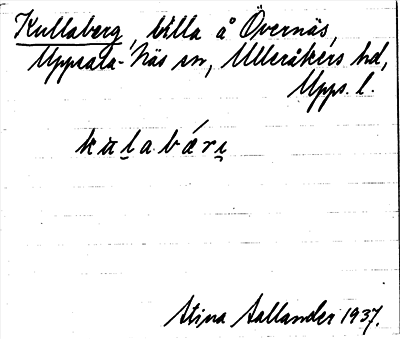 Kullaberg, villa å Övernäs,
Uppsala-Näs sn, Ulleråkers hd,
Upps. l.
kulabári
Stina Sallander 1937.